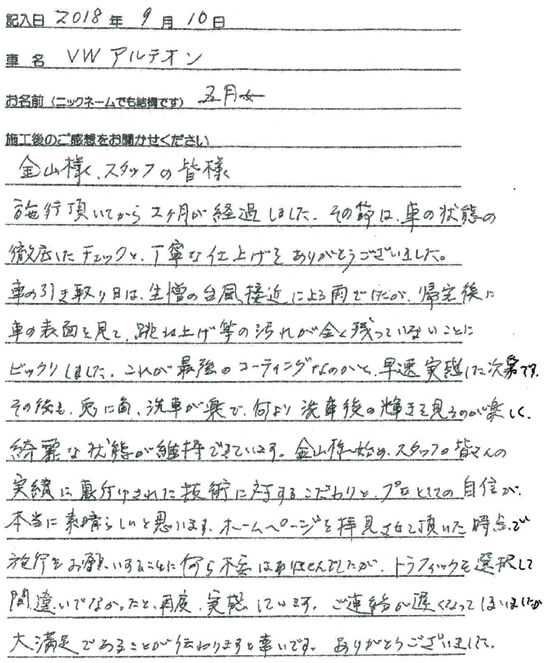 記入日 2018 年 9 月 10 日
車 名 VW アルテオン
お名前 (ニックネームでも結構です) 五月女
施工後のご感想をお聞かせください
金山様、スタッフの皆様
施行頂いてから 2ヶ月が経過しました。その節は、車の状態の
徹底したチェックと、丁寧な仕上げを ありがとうございました。
車の引き取り日は、生憎の台風接近による雨でしたが、帰宅後に
車の表面を見て、跳ね上げ等の汚れが全く残っていないことに
ビックリしました。これが最強のコーティングなのかと、早速実感した次第です。
その後も、兎に角、洗車が楽で、何より洗車後の輝きを見るのが楽しく、
綺麗な状態が維持できています。金山様始め、スタッフの皆さんの
実績に裏付けされた技術に対するこだわりと、プロとしての自信が、
本当に素晴らしいと思います。ホームページを拝見させて頂いた時点で
施行をお願いすることに何ら不安はありませんでしたが、トラフィックを選択して
間違いでなかったと、再度、実感しています。ご連絡が遅くなってしまいましたが
大満足であることが伝わりますと幸いです。ありがとうございました。